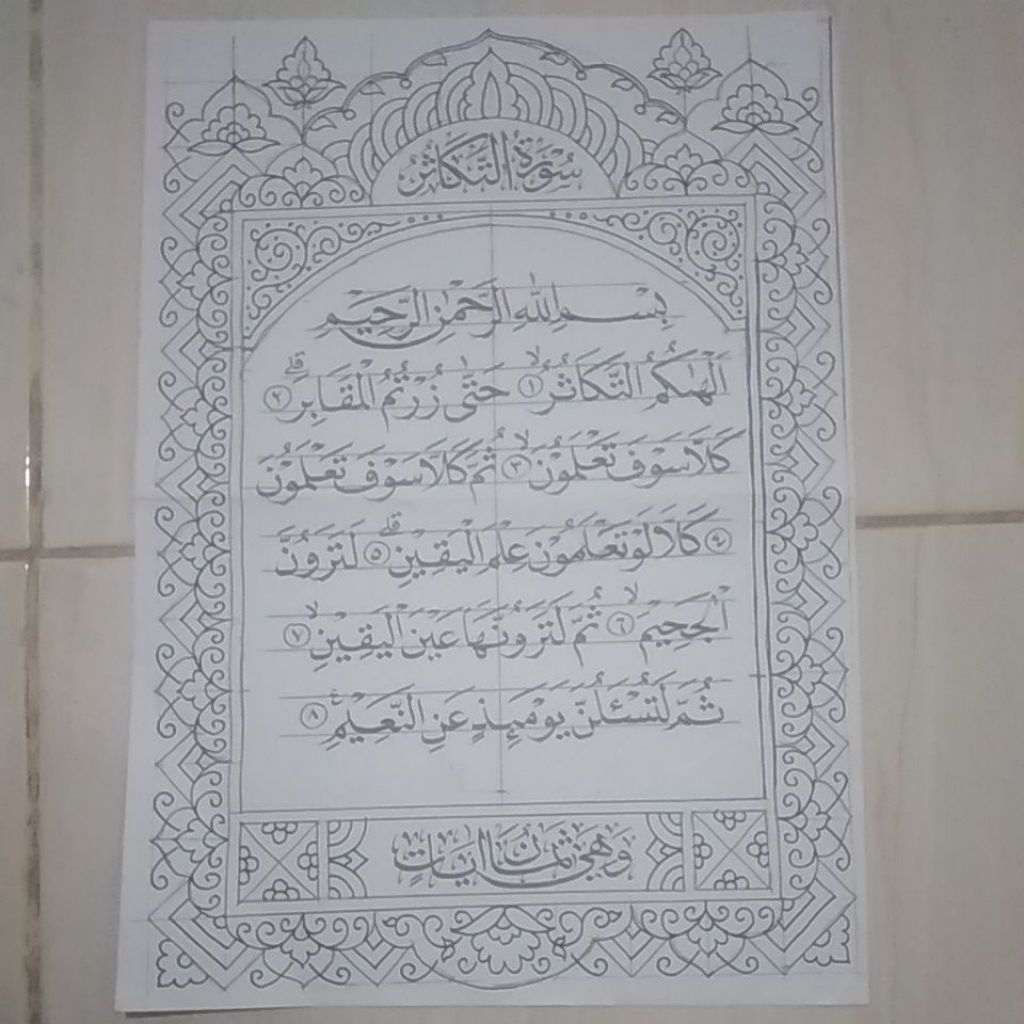 سُوْرَةُ التَّكَاثُرِ
بِسْمِ اللّٰهِ الرَّحْمٰنِ الرَّحِيْمِ
اَلْهٰىكُمُ التَّكَاثُرُۙ ١ حَتّٰى زُرْتُمُ الْمَقَابِرَۗ ٢
كَلَّا سَوْفَ تَعْلَمُوْنَۙ ٣ ثُمَّ كَلَّا سَوْفَ تَعْلَمُوْنَ
٤ كَلَّا لَوْ تَعْلَمُوْنَ عِلْمَ الْيَقِيْنِۗ ٥ لَتَرَوُنَّ
الْجَحِيْمَۙ ٦ ثُمَّ لَتَرَوُنَّهَا عَيْنَ الْيَقِيْنِۙ ٧
ثُمَّ لَتُسْـَٔلُنَّ يَوْمَىِٕذٍ عَنِ النَّعِيْمِ ࣖ ٨
وَهِيَ ثَمَانُ اٰيَاتٍ